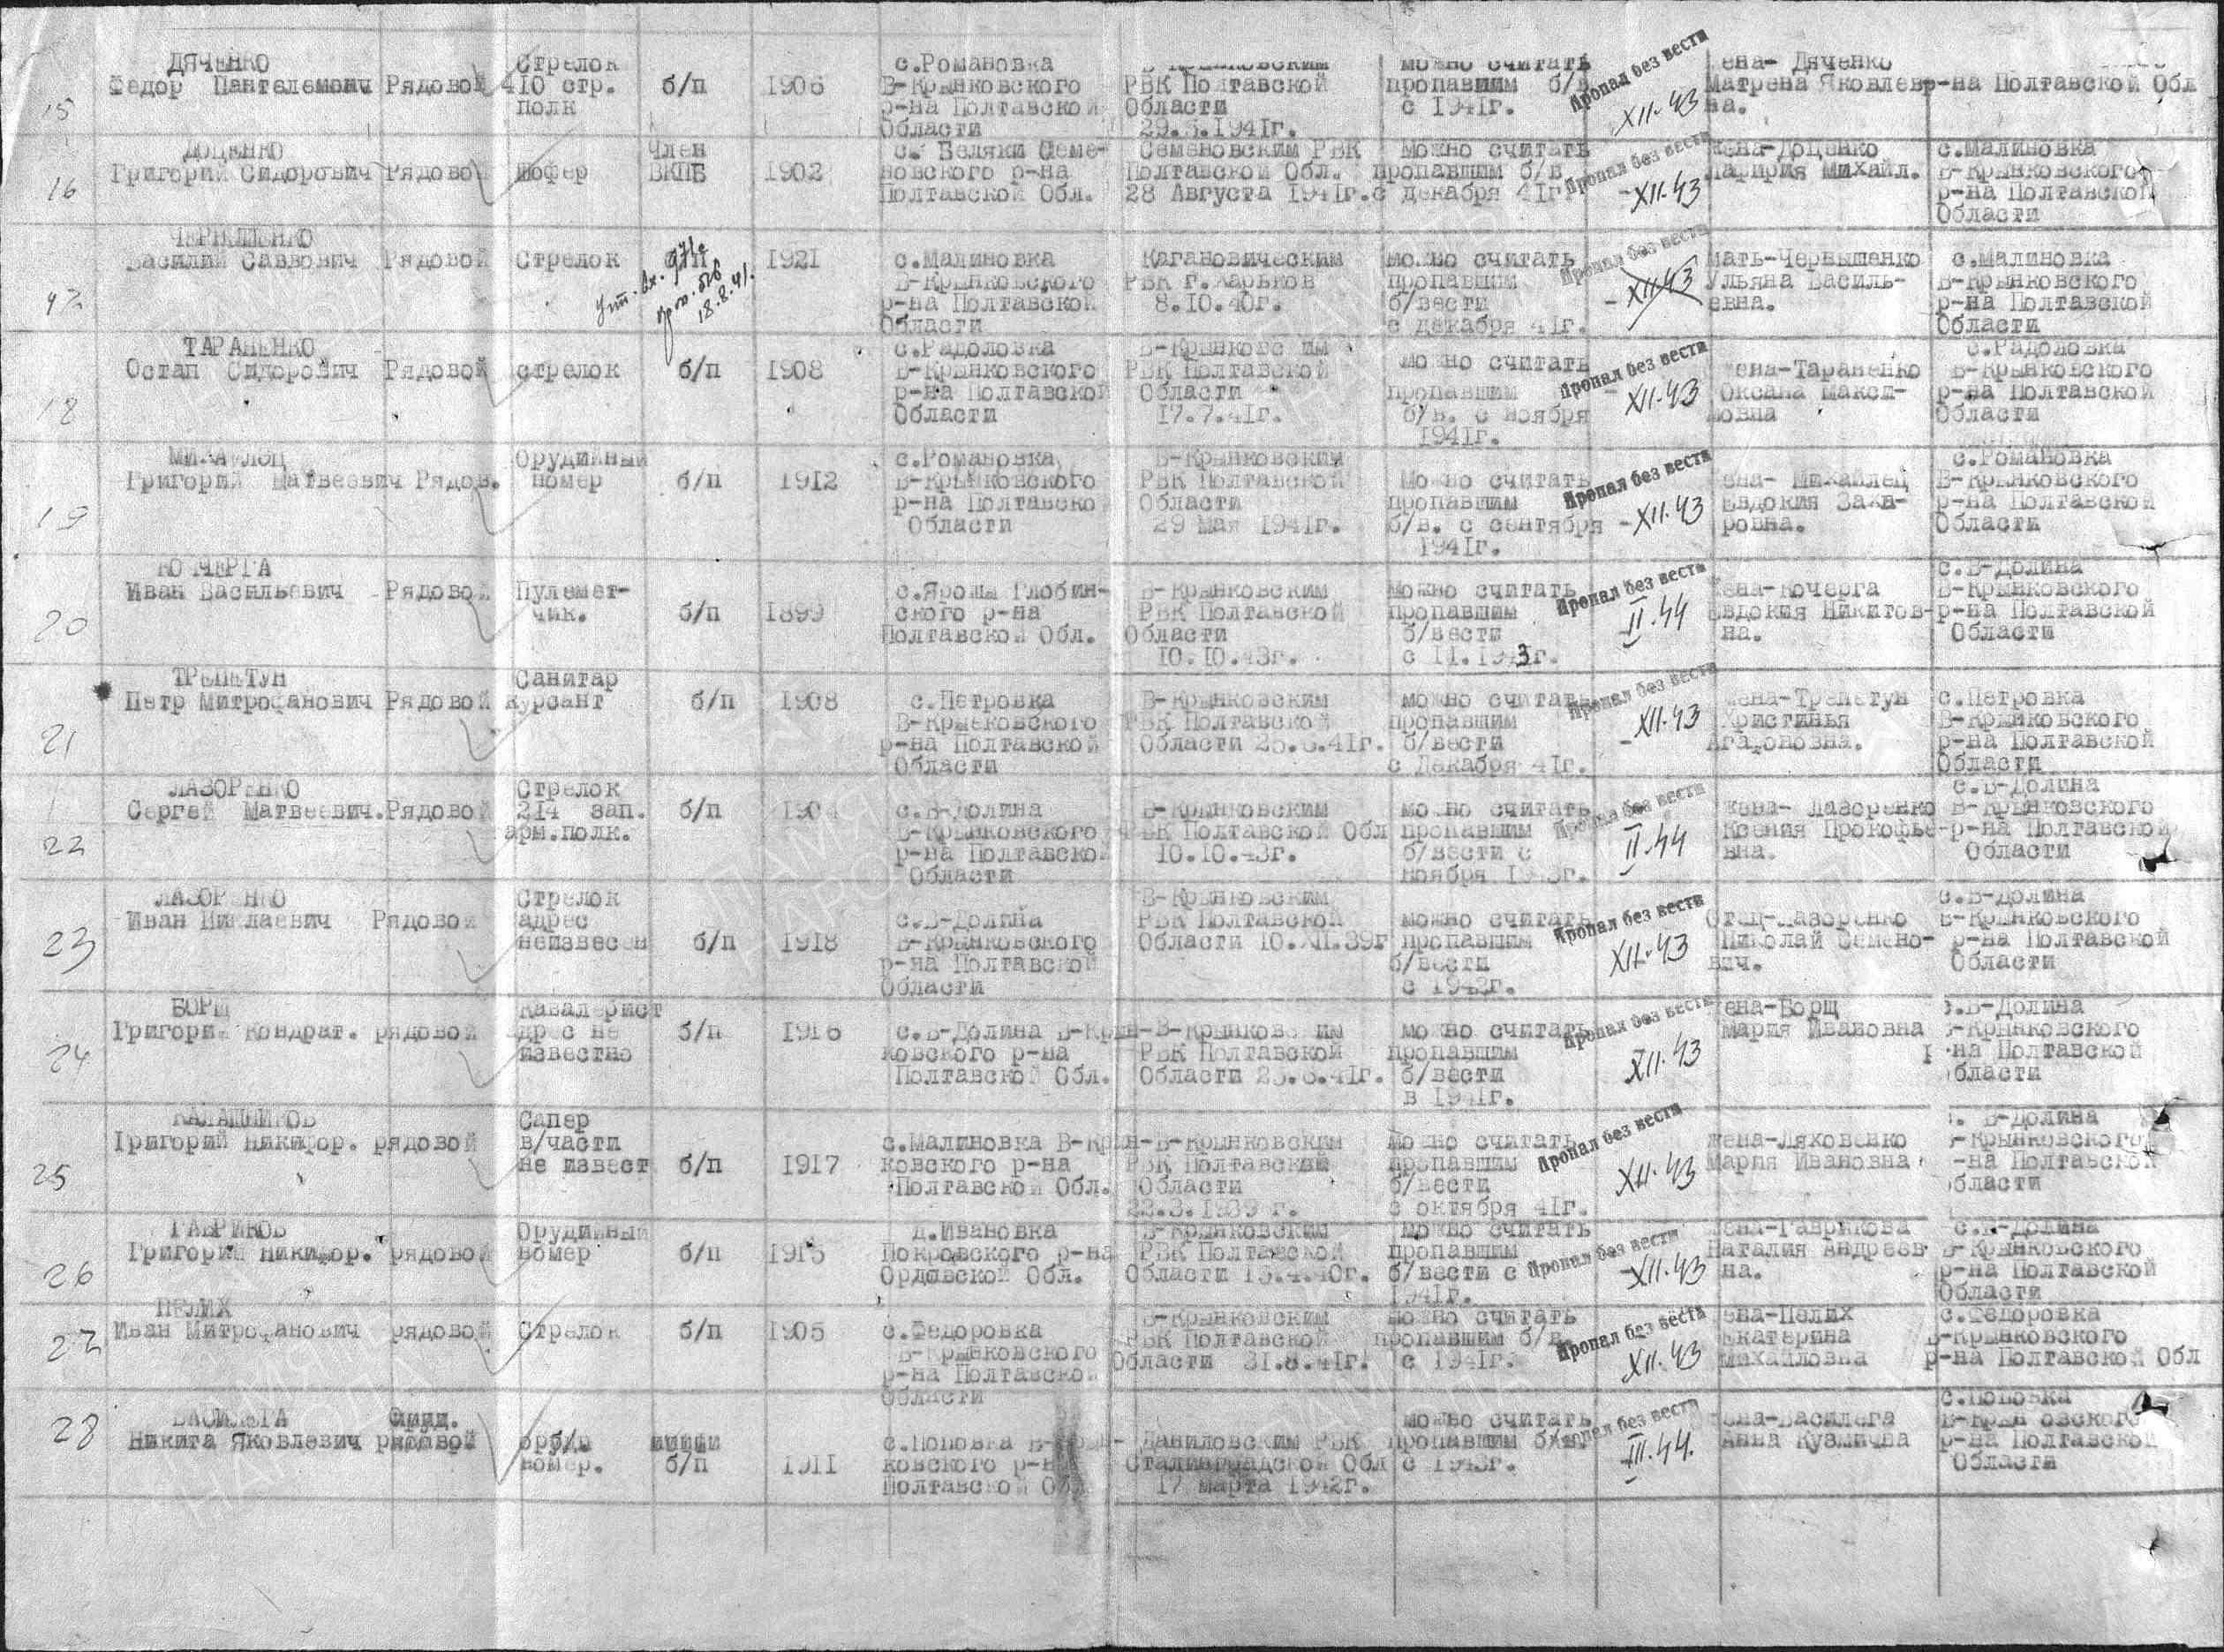 15
ДЯЧЕНКО
Федор Пантелемонч Рядовой
Стрелок
410 стр.
полк
б/п
1906
с.Романовка
В-Крынковского
р-на Полтавской
Области
РВК Полтавской
Области
29.6.1941г.
можно считать
пропавшим б/в
с 1941г.
Пропал без вести
XII-43
ена- Дяченко
Матрена Яковлев
на.
р-на Полтавской Обл
16
ДОЦЕНКО
Григорий Сидорович Рядовой
Шофер
Член
ВКПБ
1902
с. Беляки Семе-
новского р-на
Полтавской Обл.
Семеновским РВК
Полтавской Обл.
28 Августа 1941г.
Можно считать
пропавшим б/в
с декабря 41г
Пропал без вести
-XII-43
жена-Доценко
Михайл.
с.Малиновка
В-Крынковского
р-на Полтавской
Области
17
ЧЕРНЫШЕНКО
Василий Саввович Рядовой
Стрелок
1921
18.8.41.
с.Малиновка
В-Крынковского
р-на Полтавской
Области
Кагановическим
РВК г.Харьков
8.10.40г.
можно считать
пропавшим
б/вести
с декабря 41г.
Пропал без вести
- XII-43
Мать-Чернышенко
Ульяна Василь-
евна.
с.Малиновка
В-Крынковского
р-на Полтавской
Области
18
ТАРАНЕНКО
Остап Сидорович Рядовой
стрелок
б/п
1908
с.Радоловка
В-Крынковского
р-на Полтавской
Области
В-Крынковским
РВК Полтавской
Области
17.7.41г.
можно считать
пропавшим
б/в. с ноября
1941г.
Пропал без вести
XII-43
жена-Тараненко
Оксана Макси-
мовна
с.Радоловка
В-Крынковского
р-на Полтавской
Области
19
МИХАЙЛЕЦ
Григорий Матвеевич Рядов.
Орудийный
номер
б/п
1912
с.Романовка
В-Крынковского
р-на Полтавско
Области
В-Крынковским
РВК Полтавской
Области
29 Мая 1941г.
Можно считать
пропавшим
б/в. с сентября
1941г.
Пропал без вести
-XII-43
ена- Михайлец
Евдокия Заха-
ровна.
с.Романовка
В-Крынковского
р-на Полтавской
Области
20
КОЧЕРГА
Иван Васильевич Рядовой
Пулемет-
чик.
б/п
1899
с.Яроши Глобин-
ского р-на
Полтавской Обл.
В-Крынковским
РВК Полтавской
Области
10.10.43г.
Можно считать
пропавшим
б/вести
с 11.1943г.
Пропал без вести
II.44
жена-Кочерга
Евдокия Никитов-
на.
с.В-Долина
В-Крынковского
р-на Полтавской
Области
21
ТРЕПЕТУН
Петр Митрофанович Рядовой
Санитар
курсант
б/п
1908
с.Петровка
В-Крынковского
р-на Полтавской
Области
В-Крынковским
РВК Полтавской
Области 25.6.41г.
можно считать
пропавшим
б/вести
с Декабря 41г.
Пропал без вести
- XII-43
жена-Трепетун
Христинья
Агафоновна.
с.Петровка
В-Крынковского
р-на Полтавской
Области
22
ЛАЗОРЕНКО
Сергей Матвеевич.Рядовой
Стрелок
214 зап.
арм.полк.
б/п
с.В-Долина
В-Крынковского
р-на Полтавской
Области
В-Крынковским
РВК Полтавской Обл
10.10.43г.
можно считать
пропавшим
б/вести с
ноября 1943г.
Пропал без вести
II.44
жена- Лазоренко
Ксения Прокофье-
вна.
с.В-Долина
В-Крынковского
р-на Полтавской
Области
23
ЛАЗОРЕНКО
Иван Николаевич Рядовой
Стрелок
адрес
неизвесен
б/п
1918
с.В-Долина
В-Крынковского
р-на Полтавской
Области
В-Крынковским
РВК Полтавской
Области 10.XII.39г
можно считать
пропавшим
б/вести
с 1942г.
Пропал без вести
XII-43
Отец-Лазоренко
Николай Семено-
вич.
с.В-Долина
В-Крынковского
р-на Полтавской
Области
24
БОРЩ
Григорий Кондрат. рядовой
Кавалерист
адрес не
известно
б/п
1916
с.В-Долина В-Крын-
ковского р-на
Полтавской Обл.
В-Крынковским
РВК Полтавской
Области 25.6.41г.
можно считать
пропавшим
б/вести
в 1941г.
Пропал без вести
XII-43
ена-Борщ
Мария Ивановна
с.В-Долина
-Крынковского
р-на Полтавской
области
25
КАЛАШНИКОВ
Григорий Никифор. рядовой
Сапер
в/части
не извест
б/п
1917
с.Малиновка В-Крын-
ковского р-на
Полтавской Обл.
В-Крынковским
РВК Полтавский
Области
22.3.1939 г.
можно считать
пропавшим
б/вести
с октября 41г.
Пропал без вести
XII-43
жена-Ляховенко
Мария Ивановна
. В-Долина
-Крынковского
-на Полтавской
бласти
26
ГАВРИКОВ
Григорий Никифор. рядовой
Орудийный
номер
б/п
1915
д.Ивановка
Покровского р-на
Орловской Обл.
В-Крынковским
РВК Полтавской
Области 15.4.40г.
можно считать
пропавшим
б/вести с
1941г.
Пропал без вести
-XII-43
жена-Гаврикова
Наталия Андреев
на.
с.В-Долина
В-Крынковского
р-на Полтавской
Области
27
ПЕЛИХ
Иван Митрофанович рядовой
Стрелок
б/п
1905
с.Федоровка
В-Крынковского
р-на Полтавской
Области
В-Крынковским
РВК Полтавской
Области 31.8.41г.
можно считать
пропавшим б/в
с 1941г.
Пропал без вести
XII-43
ена-Пелих
Екатерина
Михайловна
с.Федоровка
В-Крынковского
р-на Полтавской Обл
28
ВАСИЛЕГА
Никита Яковлевич рядовой
номер.
б/п
1911
с.Поповка В-Крын-
ковского р-на
Полтавской Обл
Даниловским РВК
Сталинградской Обл
17 марта 1942г.
можно считать
пропавшим б/в
с 1943г.
Пропал без вести
III.44.
жена-Василега
Анна Кузминча
с.Поповка
В-Крынковского
р-на Полтавской
Области